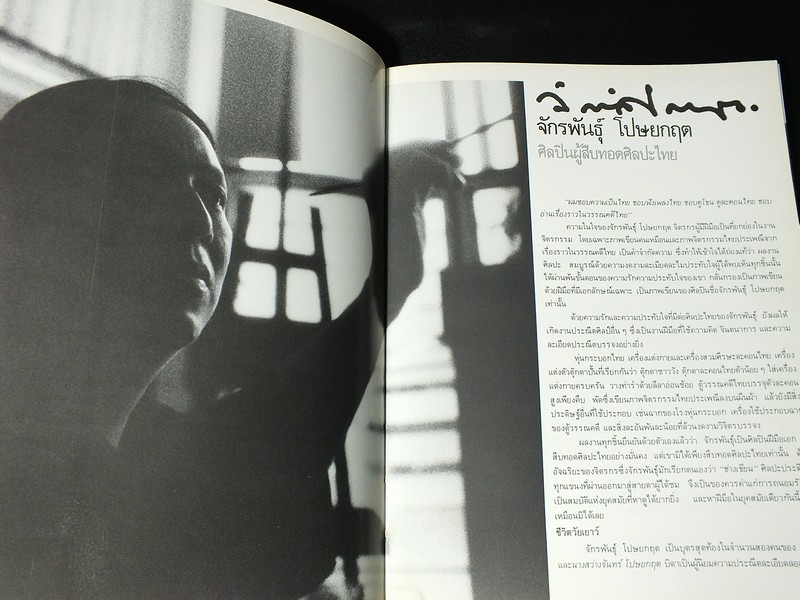 จักรพันธุ์ โปษยกฤต
ศิลปินผู้สืบทอดศิลปะไทย
"ผมชอบความเป็นไทย ชอบฟังเพลงไทย ชอบดูโขน ดูละคอนไทย ชอบ
อ่านเรื่องราวในวรรณคดีไทย"
ความในใจของจักรพันธุ์ โปษยกฤต จิตรกรผู้มีฝีมือเป็นที่ยกย่องในงาน
จิตรกรรม โดยเฉพาะภาพเขียนคนเหมือนและภาพจิตรกรรมไทยประเพณีจาก
เรื่องราวในวรรณคดีไทย เป็นคำจำกัดความ ซึ่งทำให้เข้าใจได้ถ่องแท้ว่า ผลงาน
ศิลปะ สมบูรณ์ด้วยความงดงามละเมียดละไมประทับใจผู้ได้พบเห็นทุกชิ้นนั้น
ได้ผ่านพ้นขั้นตอนของความรักความประทับใจของเขา กลั่นกรองเป็นภาพเขียน
ด้วยฝีมือที่มีเอกลักษณ์เฉพาะ เป็นภาพเขียนของศิลปินชื่อจักรพันธุ์ โปษยกฤต
เท่านั้น
ด้วยความรักและความประทับใจที่มีต่อศิลปะไทยของจักรพันธุ์ ยังผลให้
เกิดงานประณีตศิลป์อื่น ๆ ซึ่งเป็นงานฝีมือที่ใช้ความคิด จินตนาการ และความ
ละเอียดประณีตบรรจงอย่างยิ่ง
หุ่นกระบอกไทย เครื่องแต่งกายและเครื่องสวมศีรษะละคอนไทย เครื่อง
แต่งตัวตุ๊กตาปั้นที่เรียกกันว่า ตุ๊กตาชาววัง ตุ๊กตาละคอนไทยตัวน้อย ๆ ใส่เครื่อง
แต่งกายครบครัน วางท่ารำด้วยลีลาอ่อนช้อย ตู้วรรณคดีไทยบรรจุตัวละคอน
สูงเพียงคืบ พัดซึ่งเขียนภาพจิตรกรรมไทยประเพณีลงบนผืนผ้า แล้วยังมีสิ่ง
ประดิษฐ์อื่นที่ใช้ประกอบ เช่นฉากของโรงหุ่นกระบอก เครื่องใช้ประกอบฉาก
ของตู้วรรณคดี และสิ่งละอันพันละน้อยที่ล้วนงดงามวิจิตรบรรจง
ผลงานทุกชิ้นยืนยันด้วยตัวเองแล้วว่า จักรพันธุ์เป็นศิลปินฝีมือเอก
สืบทอดศิลปะไทยอย่างมั่นคง แต่เขามิได้เพียงสืบทอดศิลปะไทยเท่านั้น
อัจฉริยะของจิตรกรซึ่งจักรพันธุ์มักเรียกตนเองว่า "ช่างเขียน" ศิลปะประดิ
ทุกแขนงที่ผ่านออกมาสู่สายตาผู้ได้ชม จึงเป็นของควรค่าแก่การถนอมรัก
เป็นสมบัติแห่งยุคสมัยที่หาดูได้ยากยิ่ง และหาฝีมือในยุคสมัยเดียวกันนี้
เหมือนมิได้เลย
ชีวิตวัยเยาว์
จักรพันธุ์ โปษยกฤต เป็นบุตรสุดท้องในจำนวนสองคนของ
และนางสว่างจันทร์ โปษยกฤต บิดาเป็นผู้นิยมความประณีตละเอียดลออ